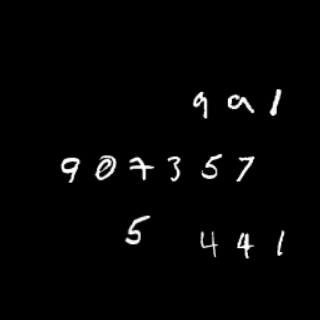 991
907357
5 441